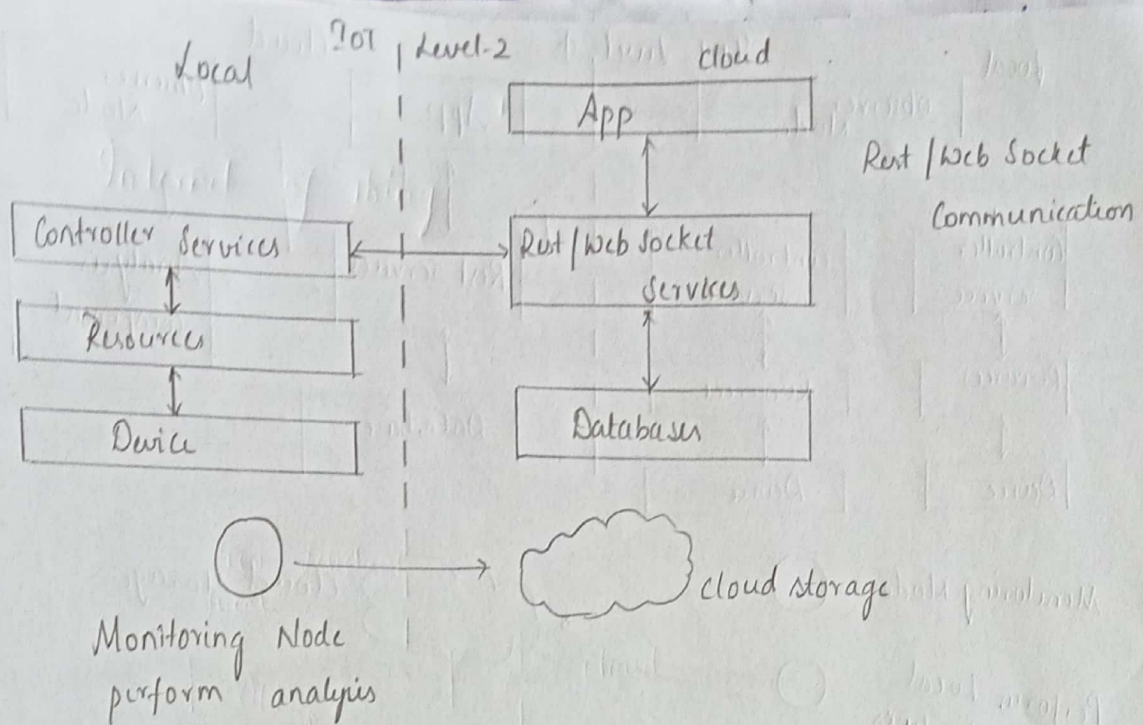 IOT Level-2
Local
Cloud
App
Rest / Web Socket
Communication
Controller Services
Rest / Web Socket
Services
Resources
Device
Databases
Cloud storage
Monitoring Node
perform analysis